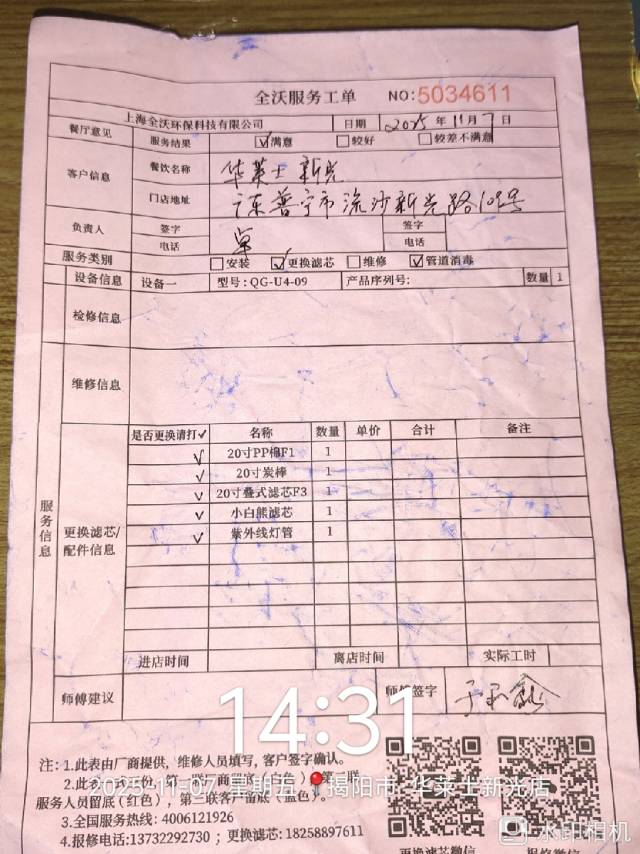 全沃服务工单 NO:5034611
上海全沃环保科技有限公司 日期 2025年11月7日
餐厅意见 服务结果 ☑满意 □较好 □较差不满意
客户信息 餐饮名称 华莱士 新光
门店地址 广东普宁市流沙新光路109号
负责人 签字 签字
电话 电话
服务类别 □安装 ☑更换滤芯 □维修 ☑管道消毒
设备信息 设备一 型号:QG-U4-09 产品序列号: 数量 1
检修信息
维修信息
服务信息
更换滤芯/配件信息
是否更换请打✓ 名称 数量 单价 合计 备注
✓ 20寸PP棉F1 1
✓ 20寸炭棒 1
✓ 20寸叠式滤芯F3 1
✓ 小白熊滤芯 1
✓ 紫外线灯管 1
进店时间 离店时间 实际工时
师傅建议 师傅签字
14:31
注:1.此表由厂商提供,维修人员填写,客户签字确认。
2025-11-07 星期五 揭阳市·华莱士新光店
服务人员留底(红色),第三联客户留底(蓝色)。
3.全国服务热线:4006121926
4.报修电话:13732292730;更换滤芯:18258897611
更换滤芯微信 报修微信
水印相机